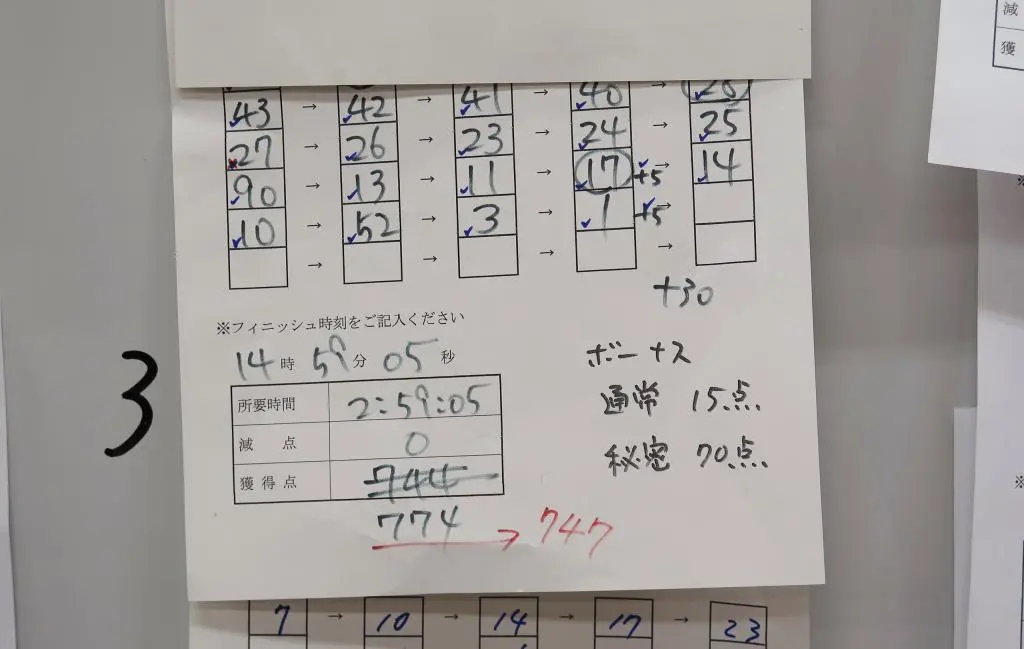 減
獲
43 → 42 → 41 → 40 → 28
27 → 26 → 23 → 24 → 25
90 → 13 → 11 → 17 +5 → 14
10 → 52 → 3 → 1 +5 →
→ → → →
+30
※フィニッシュ時刻をご記入ください
14 時 59 分 05 秒
ボーナス
所要時間 2:59:05
通常 15点
減 点 0
秘密 70点
獲得点 744
774 → 747
3
7 → 10 → 14 → 17 → 23